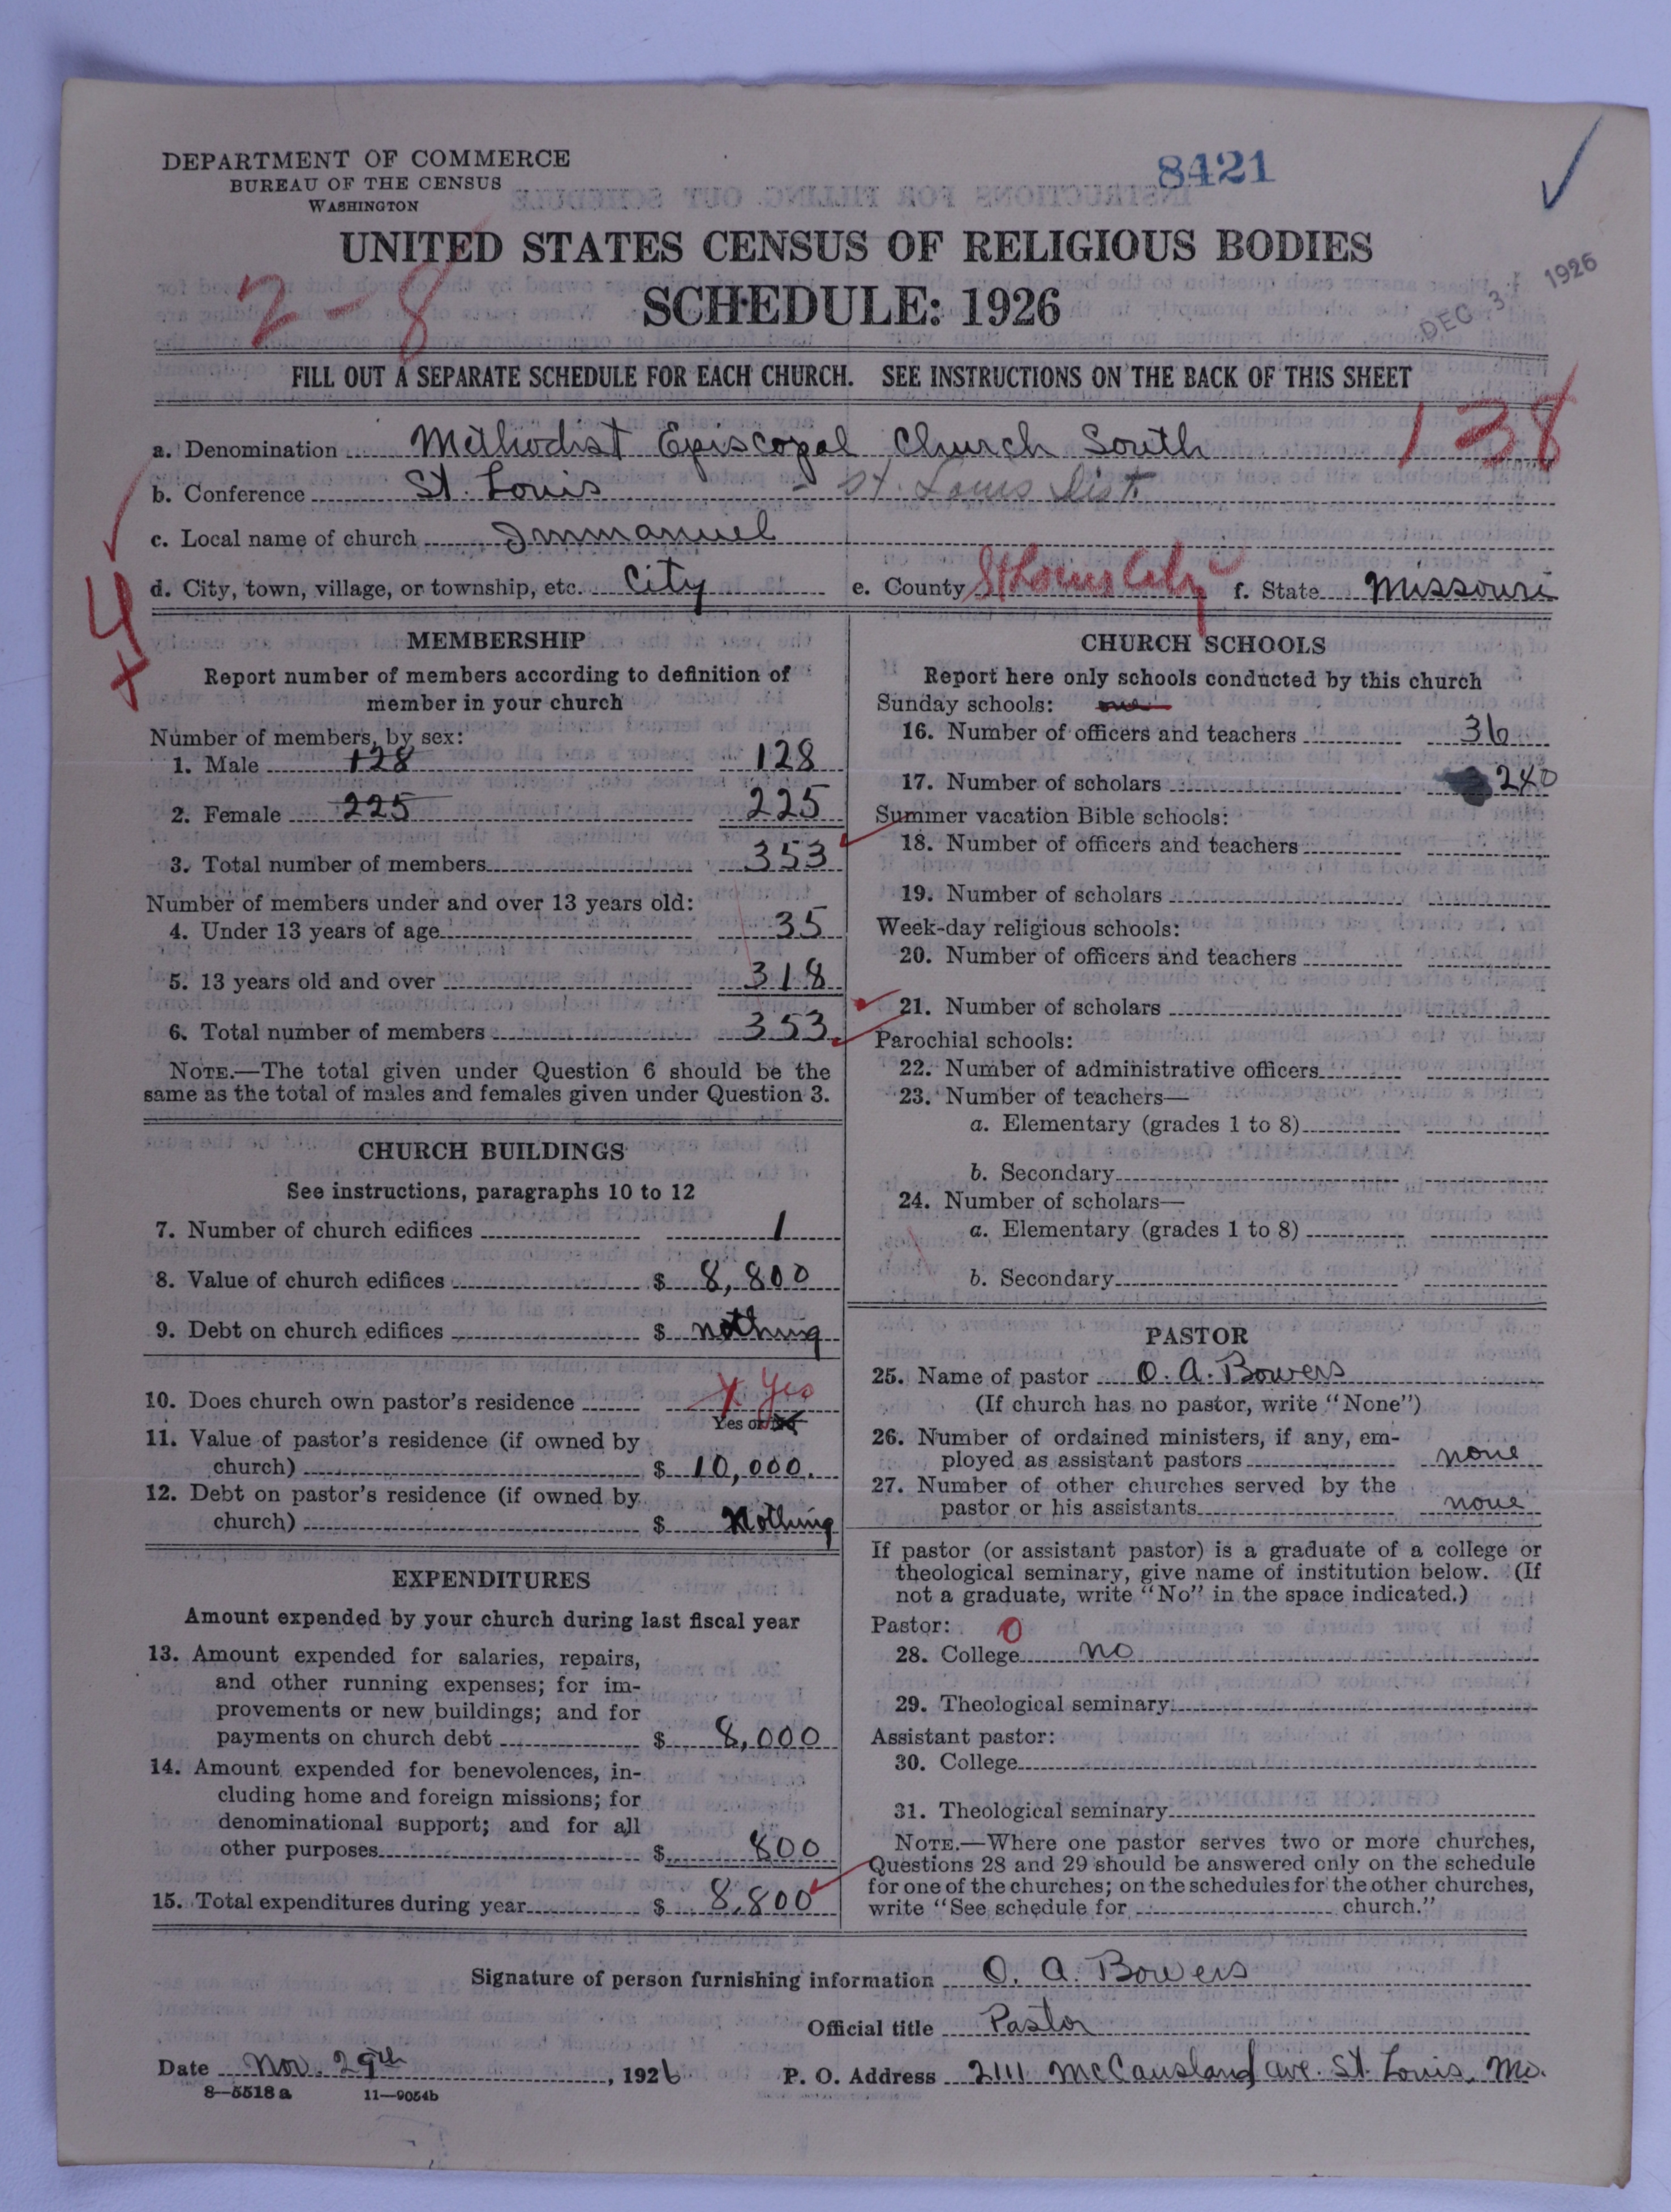 DEPARTMENT OF COMMERCE
BUREAU OF THE CENSUS
WASHINGTON
8421
UNITED STATES CENSUS OF RELIGIOUS BODIES
2-8
SCHEDULE: 1926
DEC 3 1926
FILL OUT A SEPARATE SCHEDULE FOR EACH CHURCH. SEE INSTRUCTIONS ON THE BACK OF THIS SHEET
138
a. Denomination Methodist Episcopal Church South
b. Conference St. Louis - St. Louis Dist
c. Local name of church Immanuel
d. City, town, village, or township, etc. City e. County St Louis City f. State Missouri
MEMBERSHIP
Report number of members according to definition of
member in your church
Number of members, by sex:
1. Male 128 128
2. Female 225 225
3. Total number of members 353
Number of members under and over 13 years old:
4. Under 13 years of age 35
5. 13 years old and over 318
6. Total number of members 353
NOTE.—The total given under Question 6 should be the
same as the total of males and females given under Question 3.
CHURCH BUILDINGS
See instructions, paragraphs 10 to 12
7. Number of church edifices 1
8. Value of church edifices $ 8,800
9. Debt on church edifices $ nothing
10. Does church own pastor's residence Yes
Yes or No
11. Value of pastor's residence (if owned by
church) $ 10,000.
12. Debt on pastor's residence (if owned by
church) $ Nothing
EXPENDITURES
Amount expended by your church during last fiscal year
13. Amount expended for salaries, repairs,
and other running expenses; for im-
provements or new buildings; and for
payments on church debt $ 8,000
14. Amount expended for benevolences, in-
cluding home and foreign missions; for
denominational support; and for all
other purposes $ 800
15. Total expenditures during year $ 8,800
CHURCH SCHOOLS
Report here only schools conducted by this church
Sunday schools: one
16. Number of officers and teachers 36
17. Number of scholars 240
Summer vacation Bible schools:
18. Number of officers and teachers
19. Number of scholars
Week-day religious schools:
20. Number of officers and teachers
21. Number of scholars
Parochial schools:
22. Number of administrative officers
23. Number of teachers—
a. Elementary (grades 1 to 8)
b. Secondary
24. Number of scholars—
a. Elementary (grades 1 to 8)
b. Secondary
PASTOR
25. Name of pastor O. A. Bowers
(If church has no pastor, write "None")
26. Number of ordained ministers, if any, em-
ployed as assistant pastors none
27. Number of other churches served by the
pastor or his assistants none
If pastor (or assistant pastor) is a graduate of a college or
theological seminary, give name of institution below. (If
not a graduate, write "No" in the space indicated.)
Pastor: 0
28. College no
29. Theological seminary
Assistant pastor:
30. College
31. Theological seminary
NOTE.—Where one pastor serves two or more churches,
Questions 28 and 29 should be answered only on the schedule
for one of the churches; on the schedules for the other churches,
write "See schedule for church."
Signature of person furnishing information O. A. Bowers
Official title Pastor
Date Nov. 29th, 1926 P. O. Address 2111 McCausland ave. St. Louis, Mo.
8—5518a 11—9054b